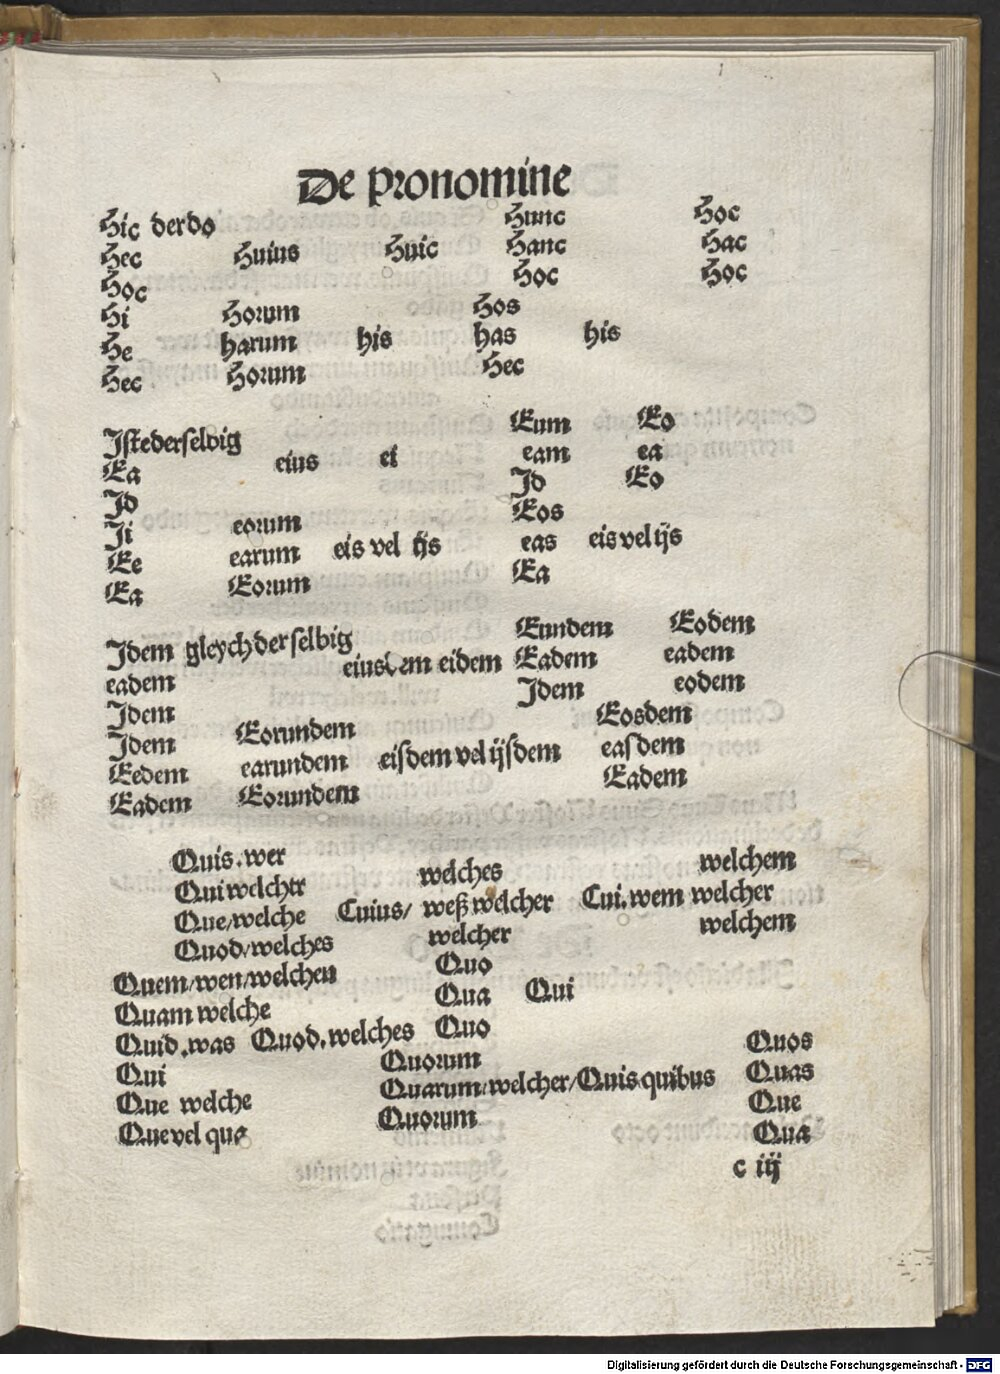 De pronomine
Hic derdo Hunc Hoc
Hec Huius Huic Hanc Hac
Hoc Hoc Hoc
Hi Horum Hos
He harum his has his
Hec Horum Hec
Iste derselbig Eum Eo
Ea eius ei eam ea
Id Id Eo
Ii eorum Eos
Ee earum eis vel ijs eas eis vel ijs
Ea Eorum Ea
Idem gleych der selbig Eundem Eodem
eadem eiusdem eidem Eadem eadem
Idem Idem eodem
Idem Eorundem Eosdem
Eedem earundem eisdem vel ijsdem easdem
Eadem Eorundem Eadem
Quis. wer welches welchem
Qui welcher Cuius/ weß welcher Cui. wem welcher
Que/welche welcher welchem
Quod/welches Quo
Quem/wen/welchen Qua Qui
Quam welche Quo
Quid. was Quod. welches Quorum Quos
Qui Quarum/welcher/Quis quibus Quas
Que welche Quorum Que
Que vel qua Qua
c iij
Digitalisierung gefördert durch die Deutsche Forschungsgemeinschaft - DFG